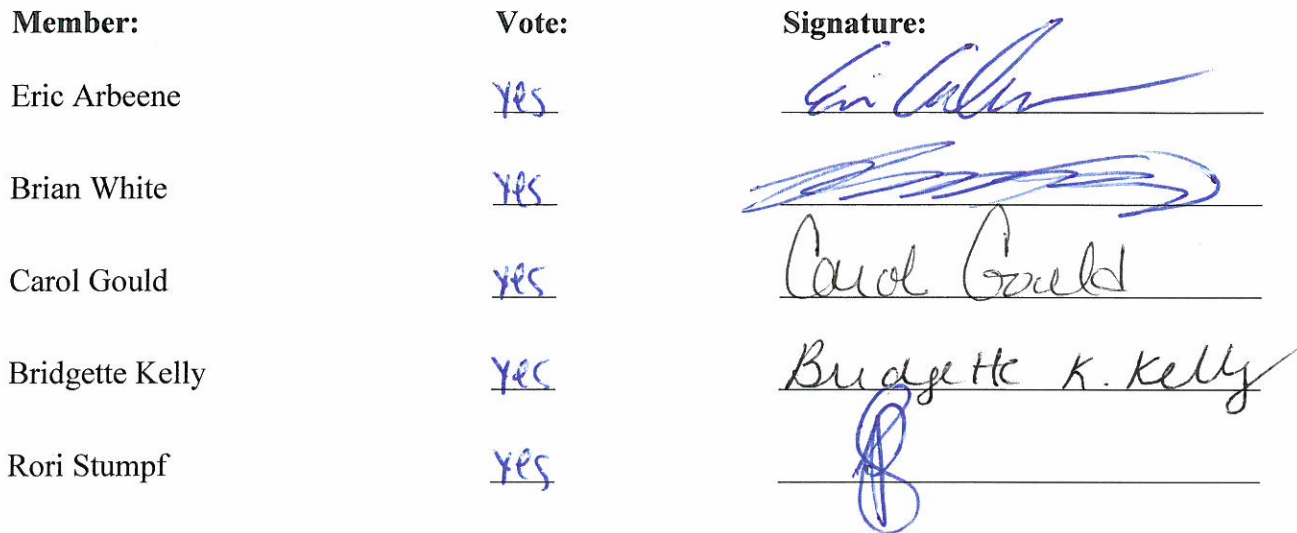 Member: Vote: Signature:
Eric Arbeene yes
Brian White yes
Carol Gould yes Carol Gould
Bridgette Kelly yes Bridgette K. Kelly
Rori Stumpf yes